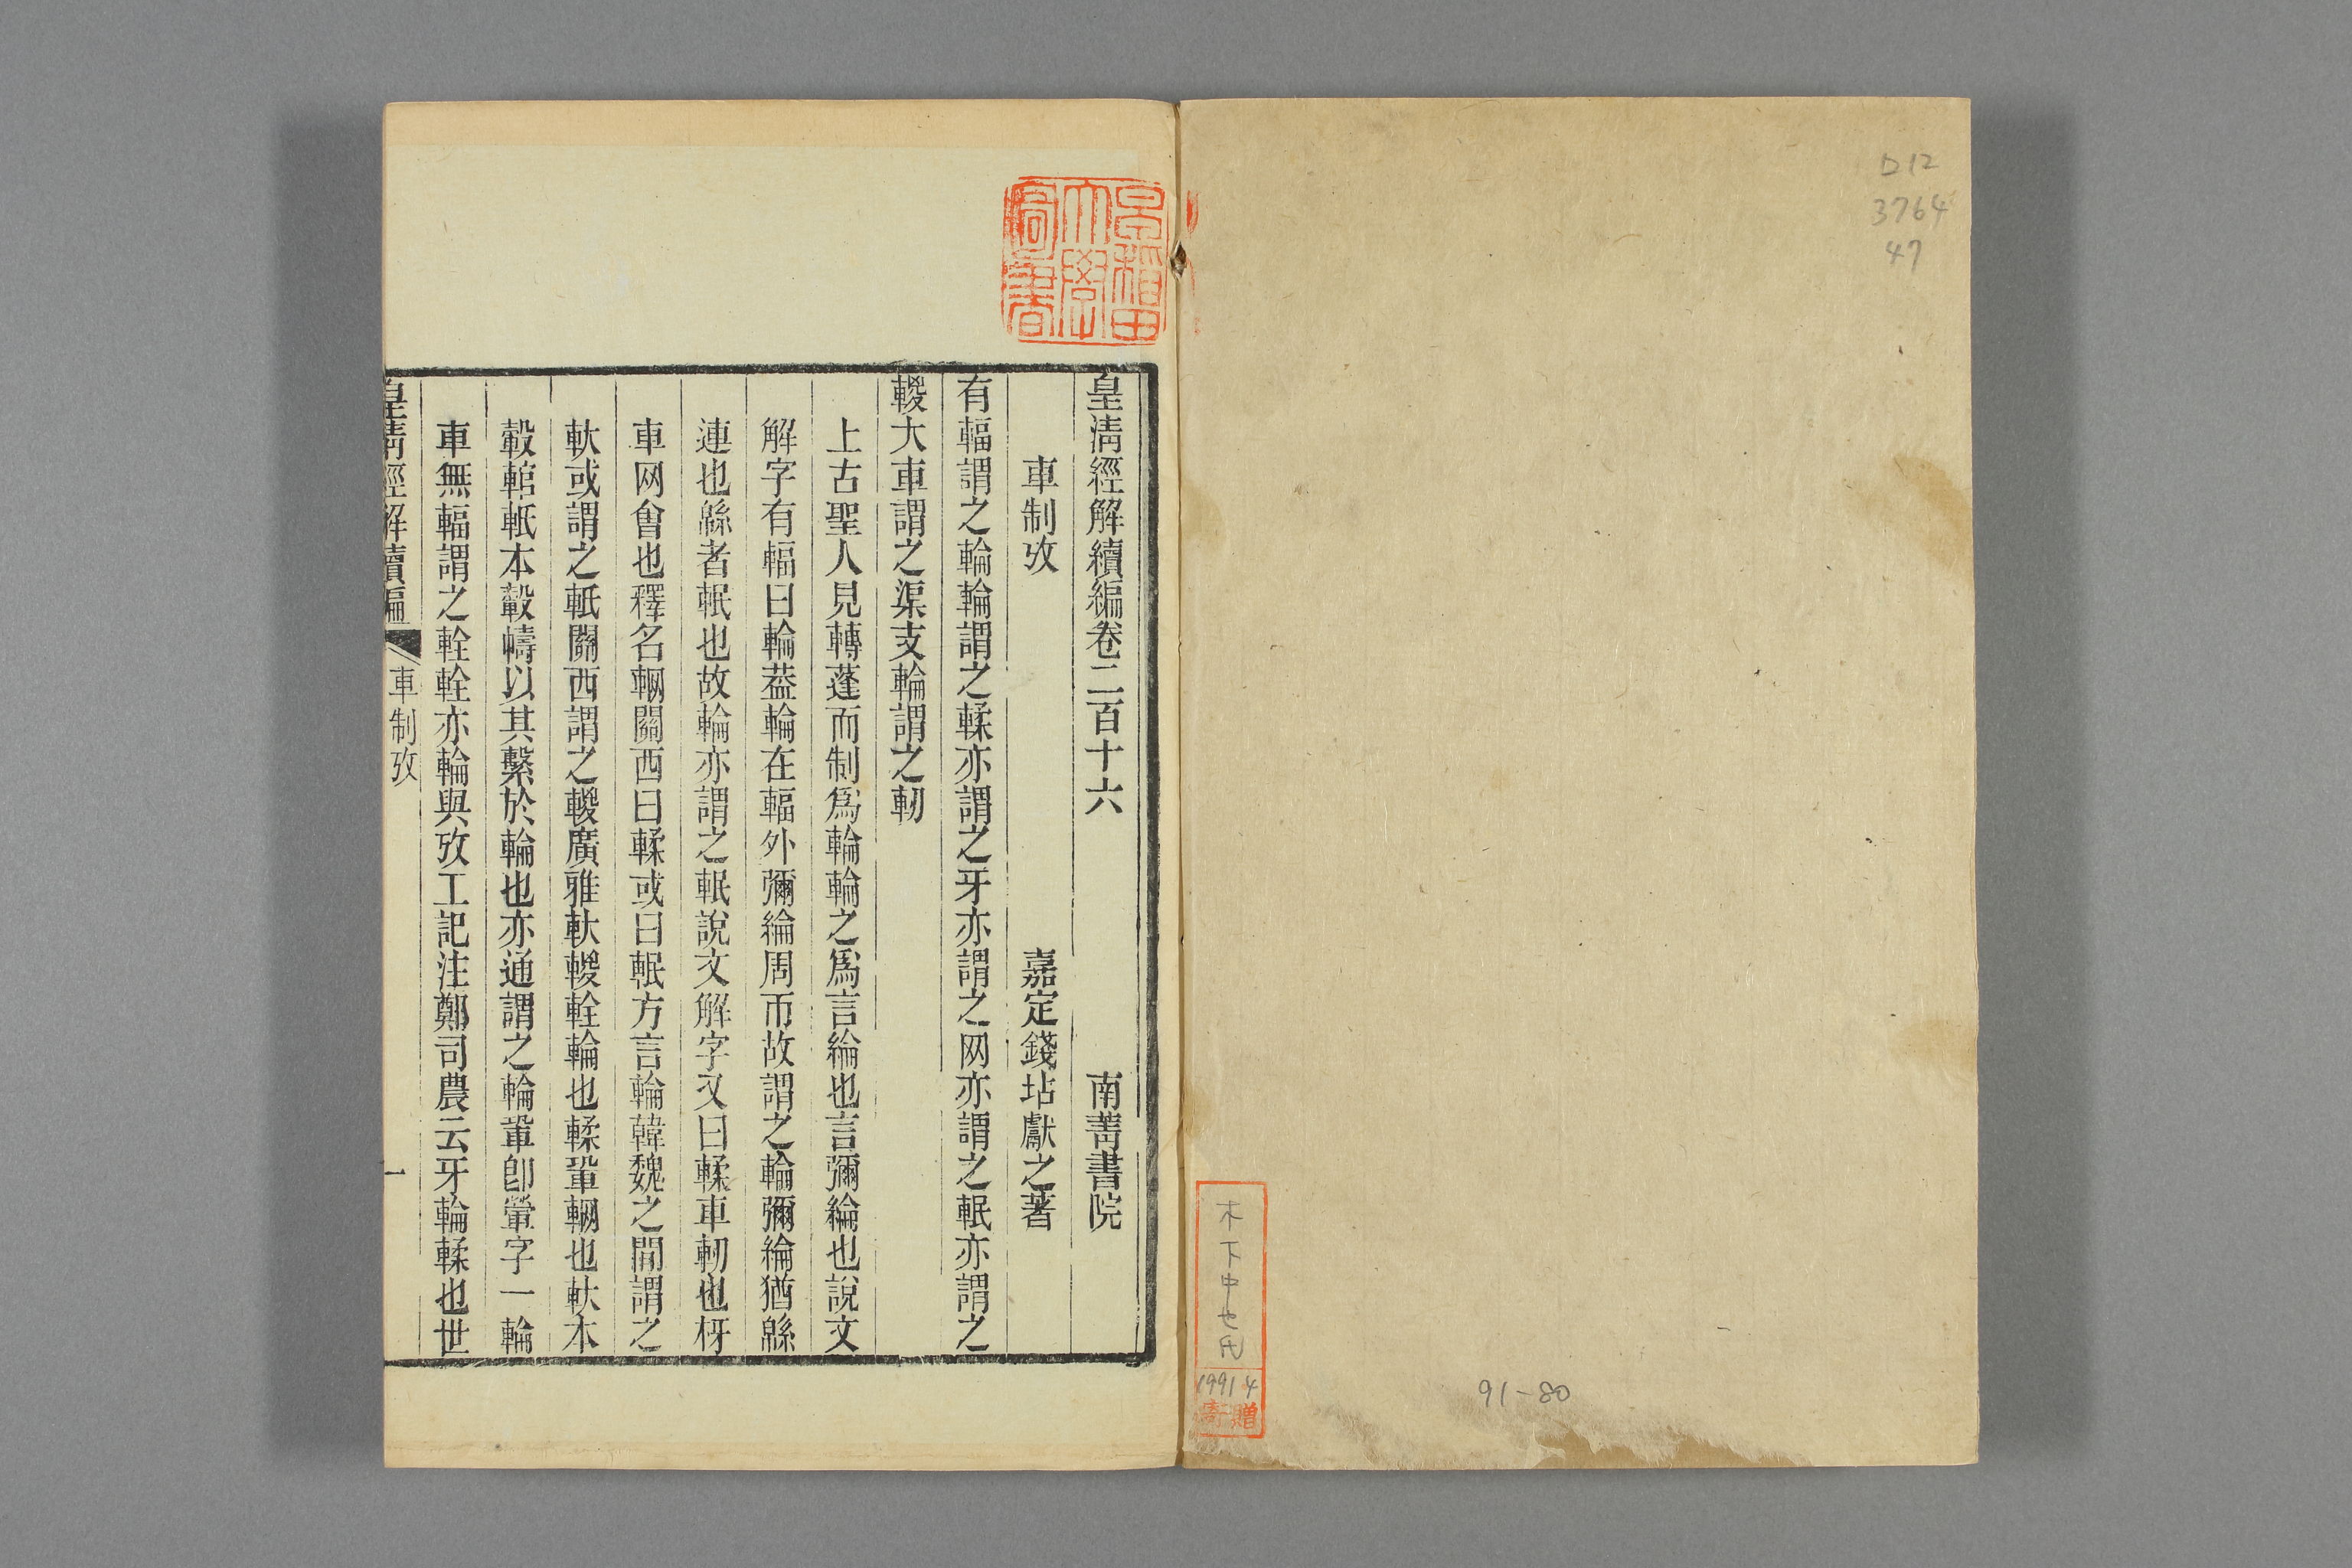 D12
3764
47
木下中也氏
1991 4
寄贈
91-80
早稲田
大學
圖書
皇清經解續編卷二百十六　南菁書院
車制攷　嘉定錢坫獻之著
有輻謂之輪輪謂之輮亦謂之牙亦謂之网亦謂之輥亦謂之
輚大車謂之渠支輪謂之軔
上古聖人見轉蓬而制爲輪輪之爲言綸也言彌綸也說文
解字有輻曰輪葢輪在輻外彌綸周帀故謂之輪彌綸猶緜
連也緜者輥也故輪亦謂之輥說文解字又曰輮車軔也枒
車网會也釋名輞關西曰輮或曰輥方言輪韓魏之閒謂之
軑或謂之軝關西謂之輚廣雅軑輚輇輪也輮輂輞也軑本
轂輨軝本轂幬以其繫於輪也亦通謂之輪輂卽輦字一輪
車無輻謂之輇輇亦輪與攷工記注鄭司農云牙輪輮也世
皇清經解續編　車制攷　一